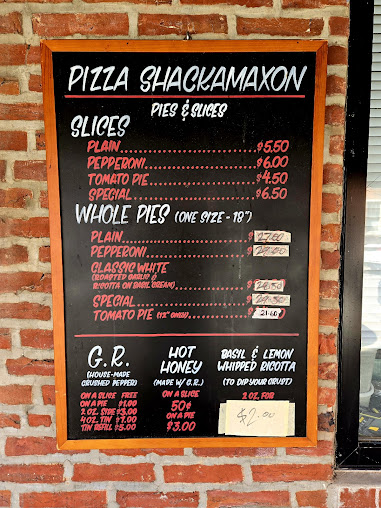 PIZZA SHACKAMAXON
PIES & SLICES
SLICES
PLAIN........................$5.50
PEPPERONI....................$6.00
TOMATO PIE...................$4.50
SPECIAL......................$6.50
WHOLE PIES (ONE SIZE - 18")
PLAIN........................$ 27.50
PEPPERONI....................$
CLASSIC WHITE
(ROASTED GARLIC &
RICOTTA ON BASIL CREAM)......$
SPECIAL......................$
TOMATO PIE (12" ONLY)........$ 21.60
G.R.
(HOUSE-MADE
CRUSHED PEPPER)
ON A SLICE FREE
ON A PIE $1.00
2 OZ. SIDE $3.00
4 OZ. TIN $7.00
TIN REFILL $5.00
HOT
HONEY
(MADE W/ G.R.)
ON A SLICE
50¢
ON A PIE
$3.00
BASIL & LEMON
WHIPPED RICOTTA
(TO DIP YOUR CRUST)
2 OZ. FOR
$2.00